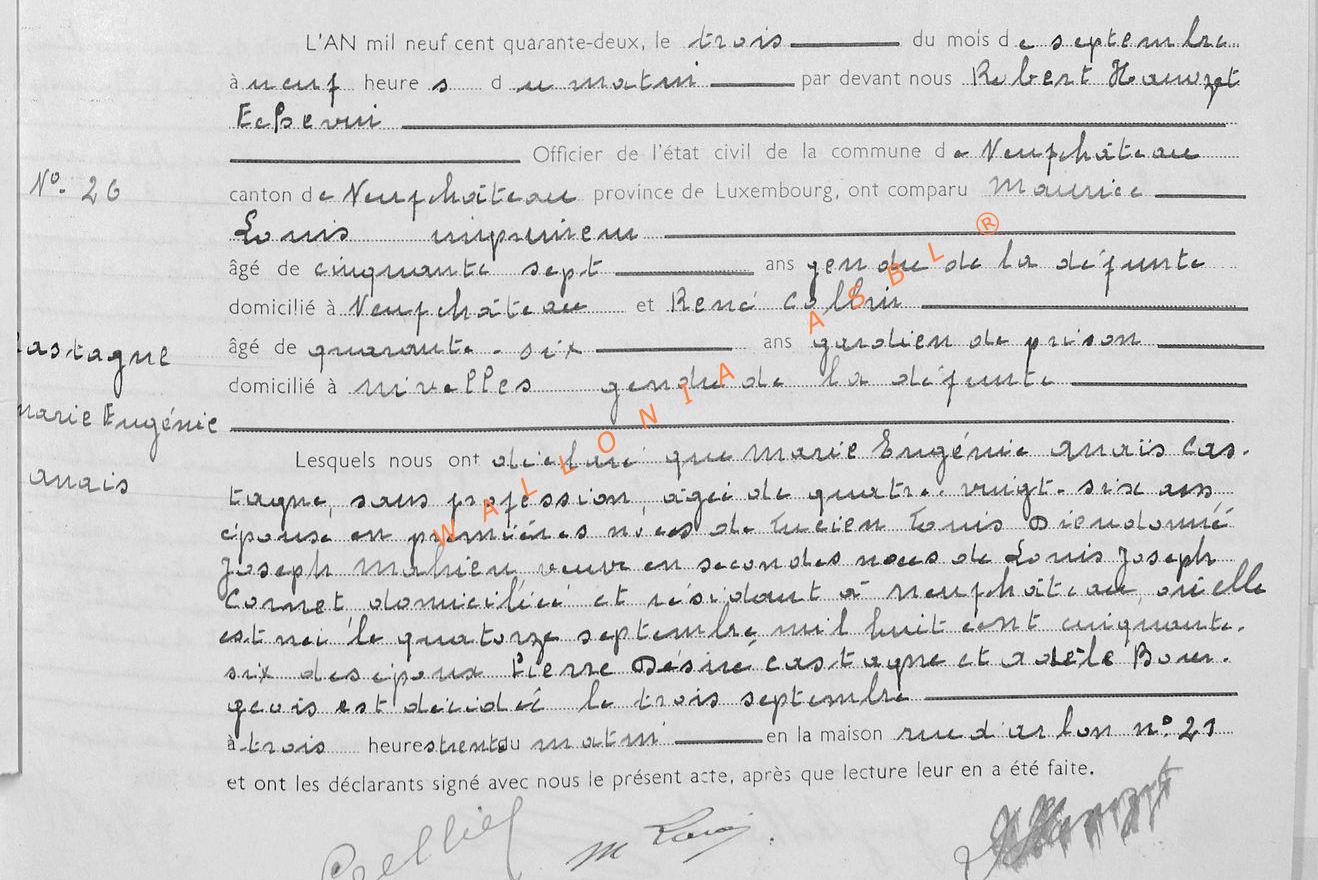 L'AN mil neuf cent quarante-deux, le trois du mois de septembre
à neuf heures du matin par devant nous Robert Hauzet
Echevin
Officier de l'état civil de la commune de Neufchâteau
N°. 26
canton de Neufchâteau province de Luxembourg, ont comparu Maurice
Louis imprimeur
âgé de cinquante sept ans gendre de la défunte
domicilié à Neufchâteau et René Collin
Castagne
âgé de quarante-six ans gardien de prison
domicilié à nivelles gendre de la défunte
marie Eugénie
anaïs
Lesquels nous ont déclaré que Marie Eugénie anaïs Cas-
tagne, sans profession, âgée de quatre-vingt-six ans
épouse en premières noces de Lucien Louis Dieudonné
Joseph Mahieu veuve en secondes noces de Louis Joseph
Cornet domiciliée et résidant à neufchâteau, où elle
est née le quatorze septembre mil huit cent cinquante-
six des époux Pierre Désiré Castagne et adèle Bour-
geois est décédée le trois septembre
à trois heures trente du matin en la maison rue d'arlon n° 21
et ont les déclarants signé avec nous le présent acte, après que lecture leur en a été faite.
M Louis
WALLONIA ASBL ®